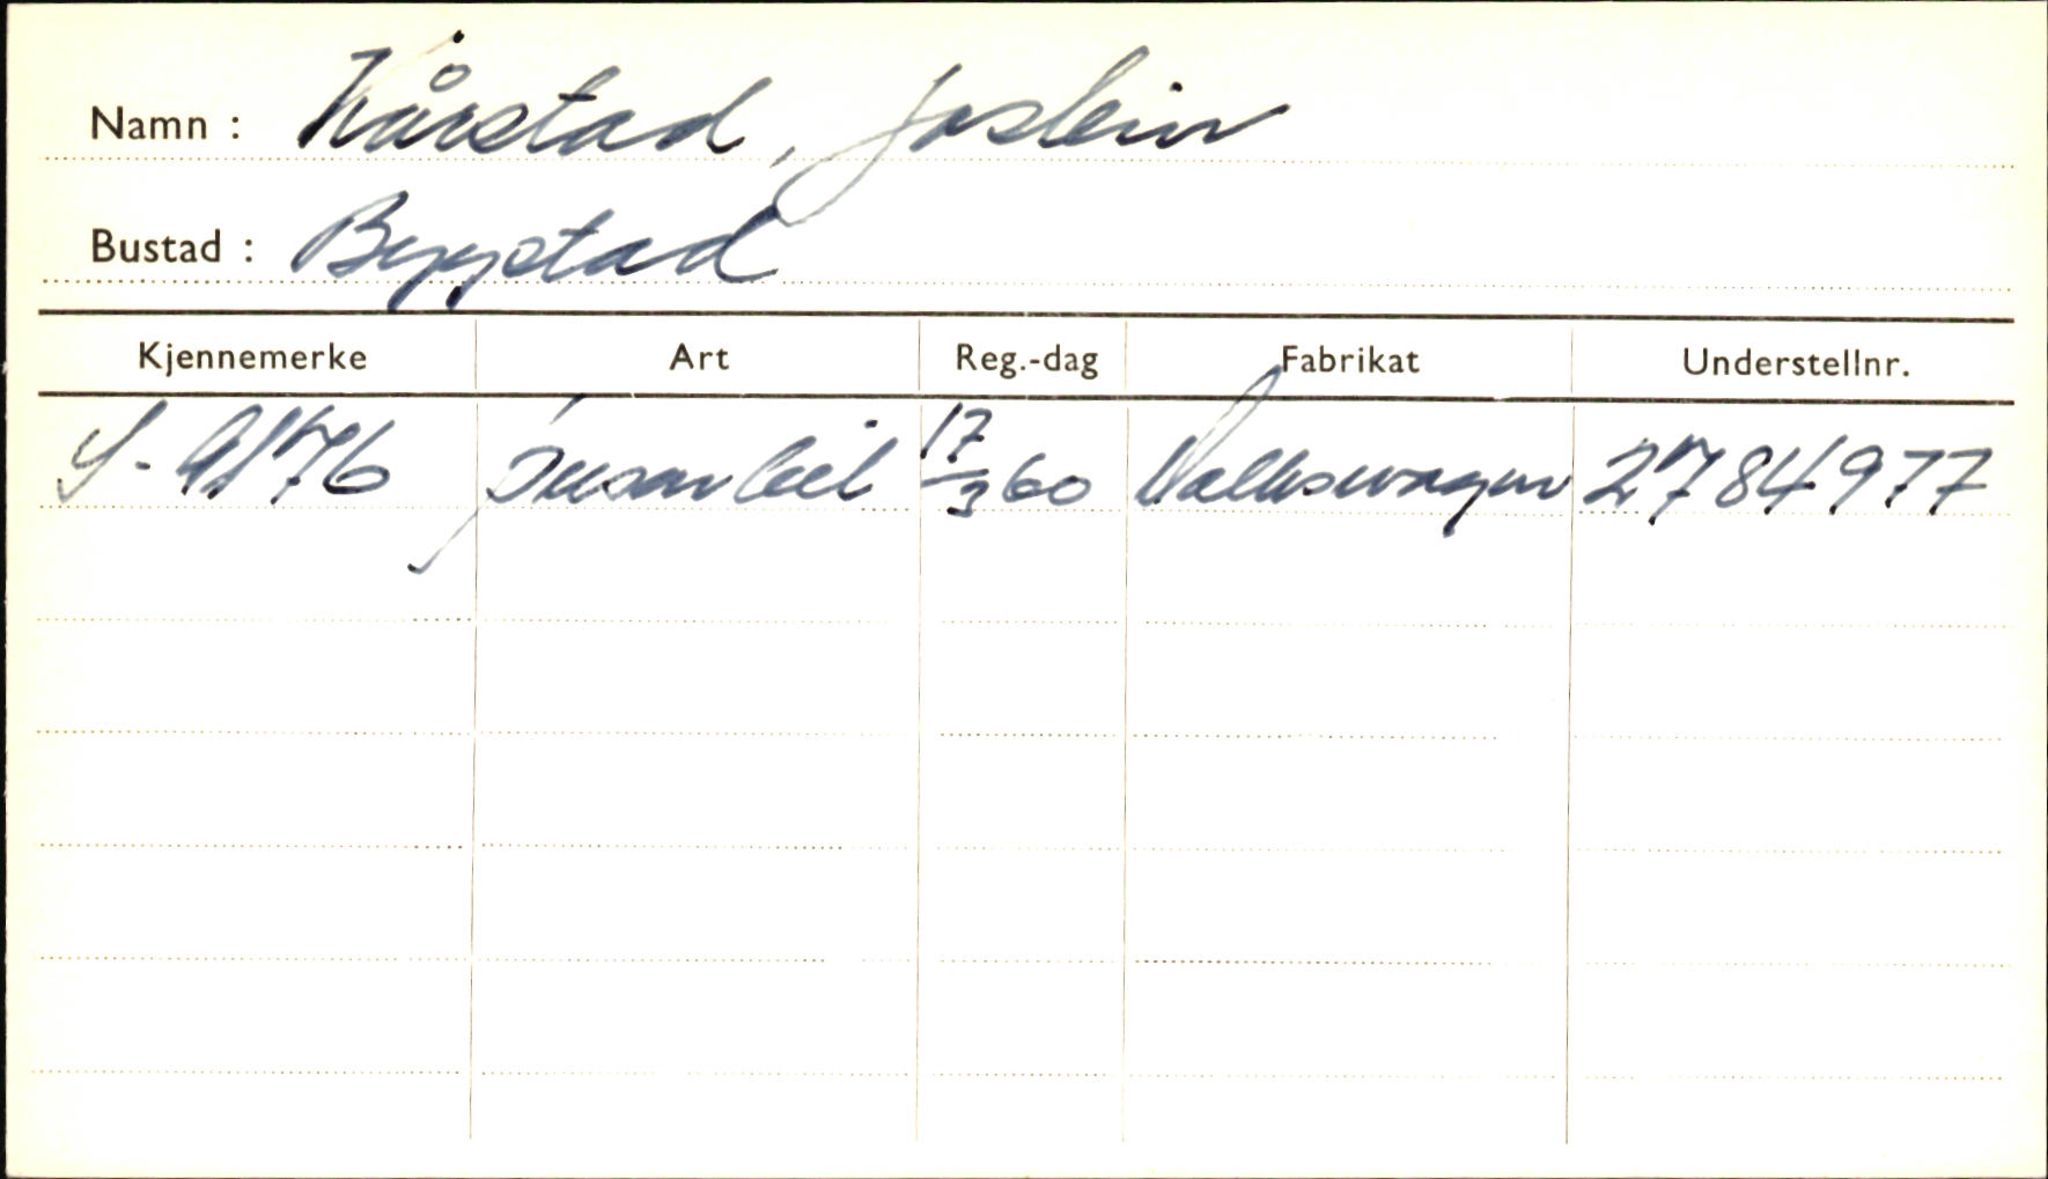 Namn : Kårstad, Jostein
Bustad : Bygstad
Kjennemerke Art Reg.-dag Fabrikat Understellnr.
S-9176 Personbil 17/3 60 Volkswagen 2784977